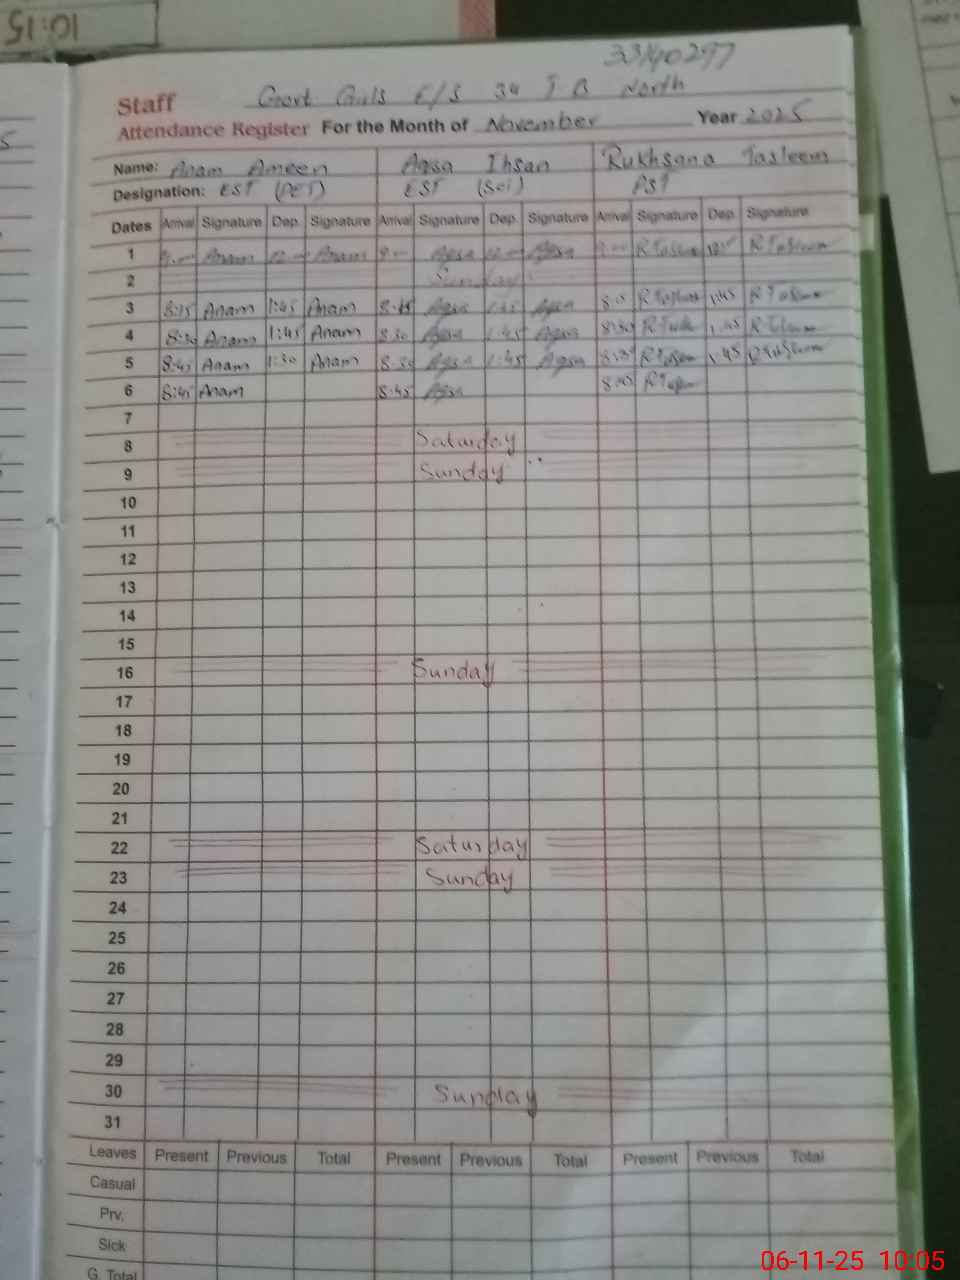 10:15
33140297
Staff Govt Girls E/S 34 J B North
Attendance Register For the Month of November Year 2025
Name: Anam Ameen Aqsa Ihsan Rukhsana Tasleem
Designation: EST (PET) EST (Sci) PST
Dates Arrival Signature Dep. Signature Arrival Signature Dep. Signature Arrival Signature Dep. Signature
1 Anam Anam Aqsa Aqsa
2 Sunday
3 8:15 Anam 1:45 Anam 8:15 Aqsa 1:45 Aqsa 1:45
4 8:30 Anam 1:45 Anam 8:30 Aqsa 1:45 Aqsa 8:30 1:45
5 8:45 Anam 1:30 Anam 8:30 Aqsa 1:45 Aqsa 1:45
6 8:45 Anam 8:45 Aqsa
7
8 Saturday
9 Sunday
10
11
12
13
14
15
16 Sunday
17
18
19
20
21
22 Saturday
23 Sunday
24
25
26
27
28
29
30 Sunday
31
Leaves Present Previous Total Present Previous Total Present Previous Total
Casual
Prv.
Sick
G. Total
06-11-25 10:05